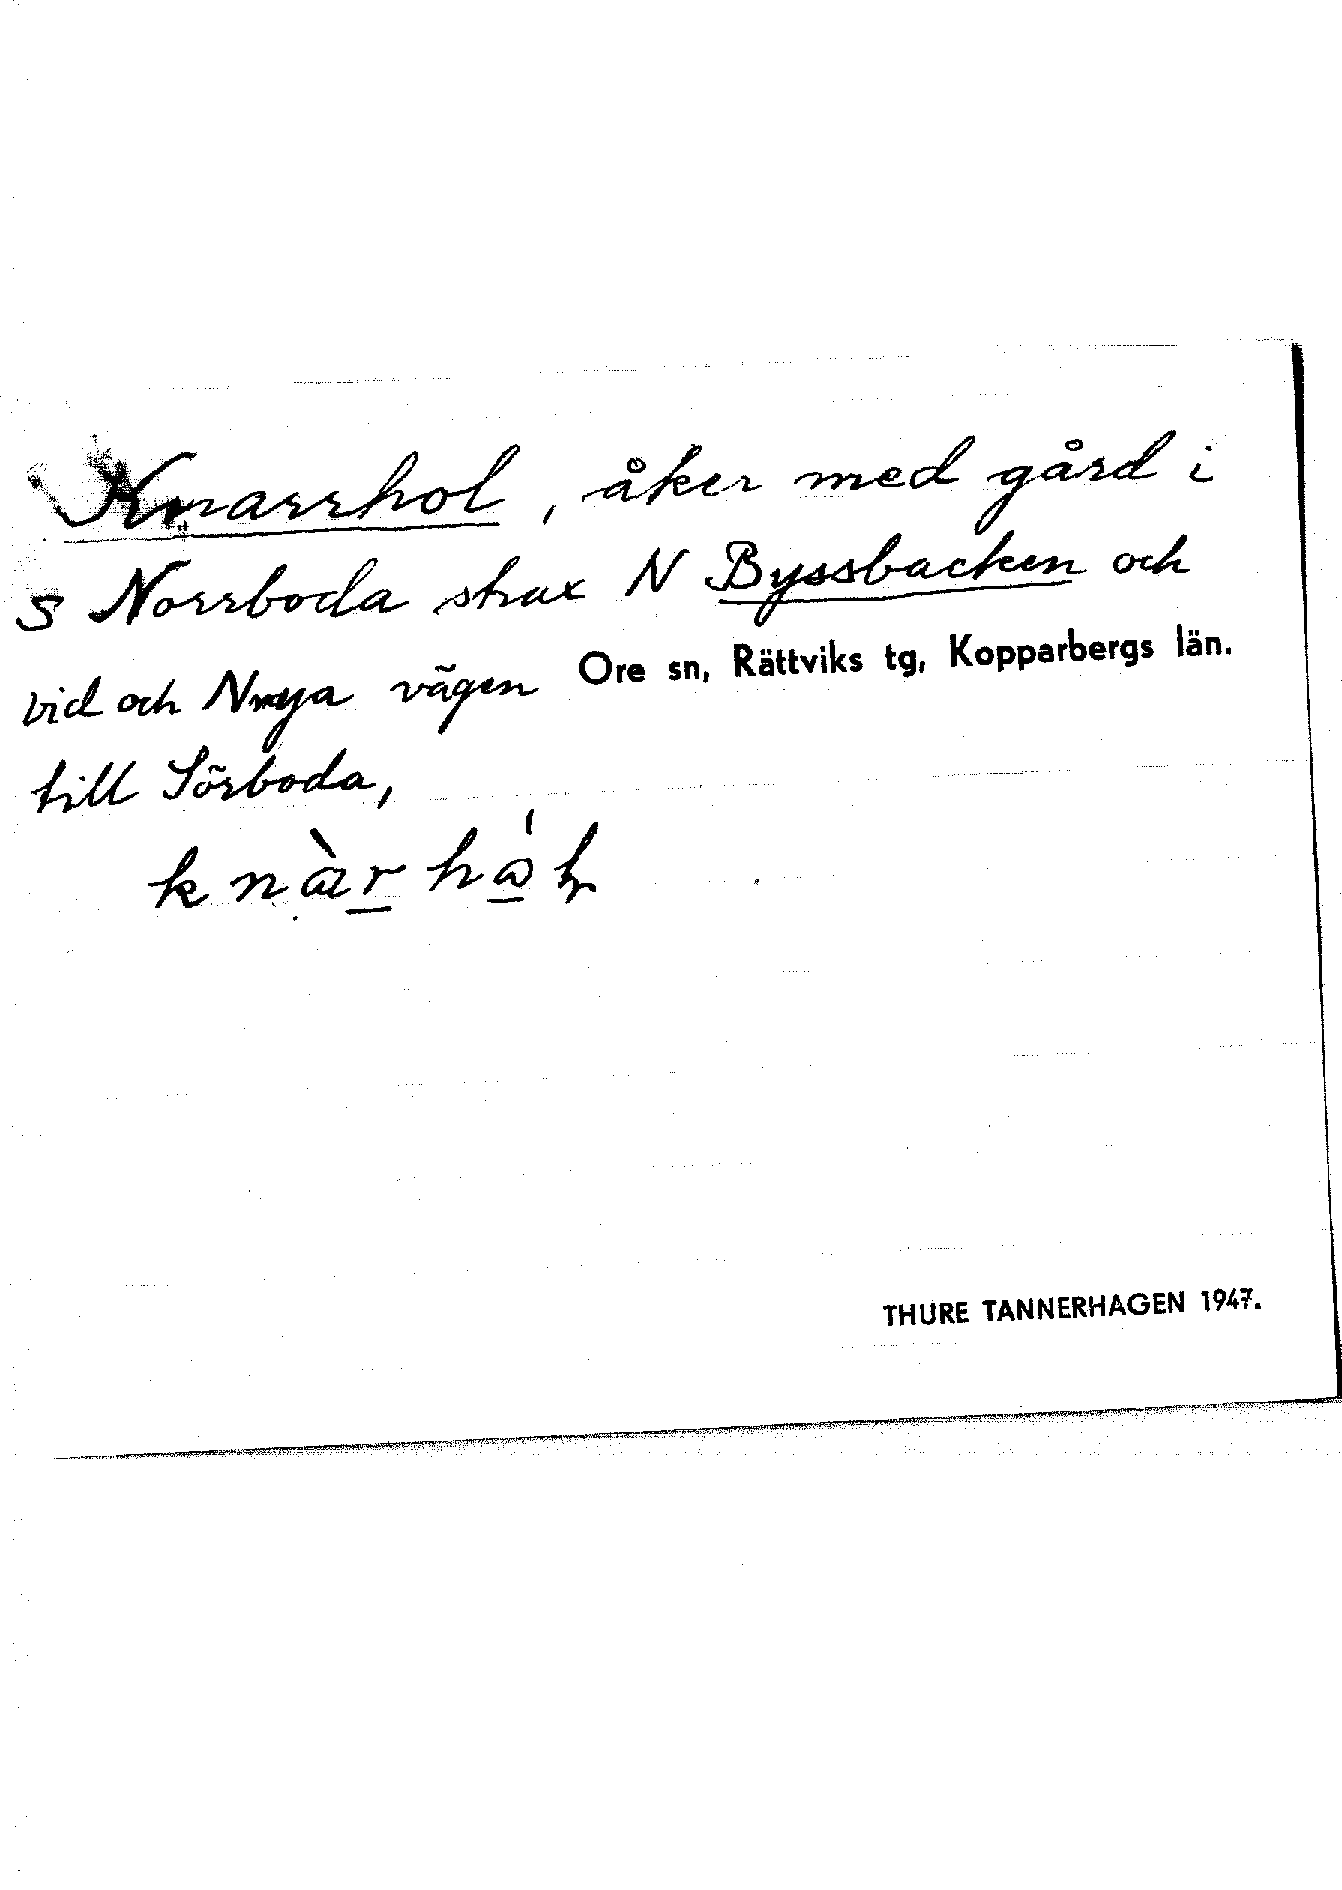 Knarrhol, åker med gård i
S Norrboda strax N Byssbacken och
vid och N nya vägen
Ore sn, Rättviks tg, Kopparbergs län.
till Sörboda,
THURE TANNERHAGEN 1947.